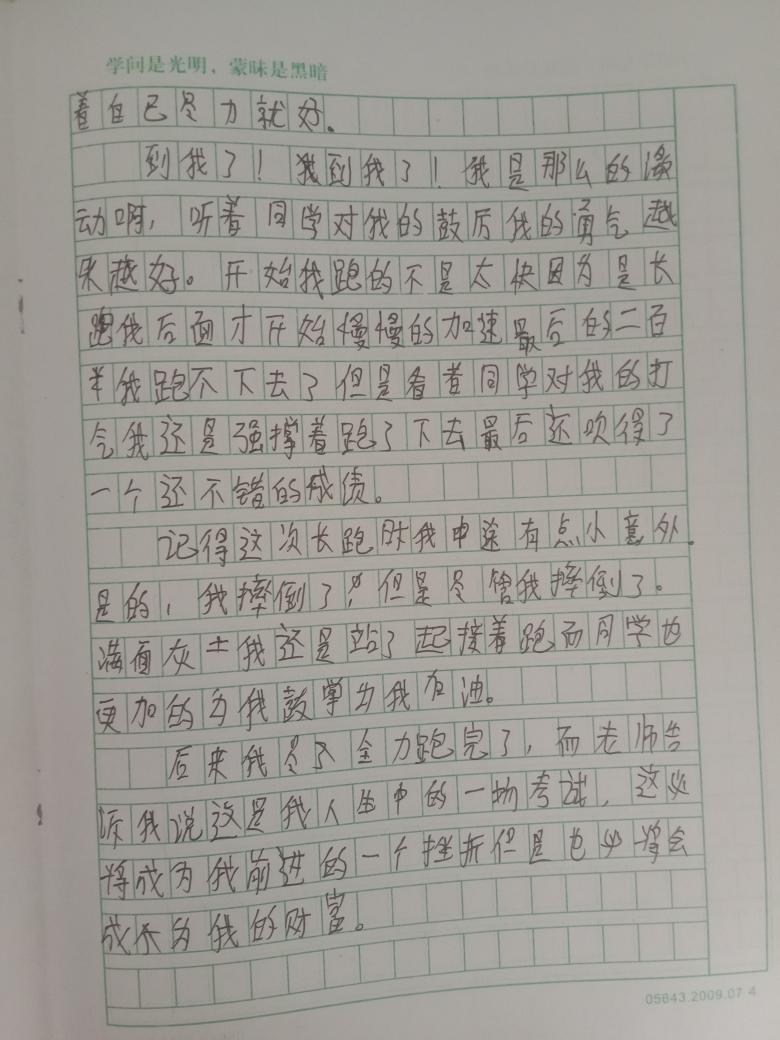 学问是光明，蒙昧是黑暗
着自己尽力就好。
到我了！我到我了！我是那么的激
动啊，听着同学对我的鼓厉我的勇气越
来越好。开始我跑的不是太快因为是长
跑我后面才开始慢慢的加速最后的二百
半我跑不下去了但是看着同学对我的打
气我还是强撑着跑了下去最后还取得了
一个还不错的成绩。
记得这次长跑时我中途有点小意外.
是的，我摔倒了，但是尽管我摔倒了。
满面灰土我还是站了起接着跑而同学也
更加的为我鼓掌为我加油。
后来我尽全力跑完了，而老师告
诉我说这是我人生中的一场考试，这必
将成为我前进的一个挫折但是也必将会
成为我的财富。
05643.2009.07 4